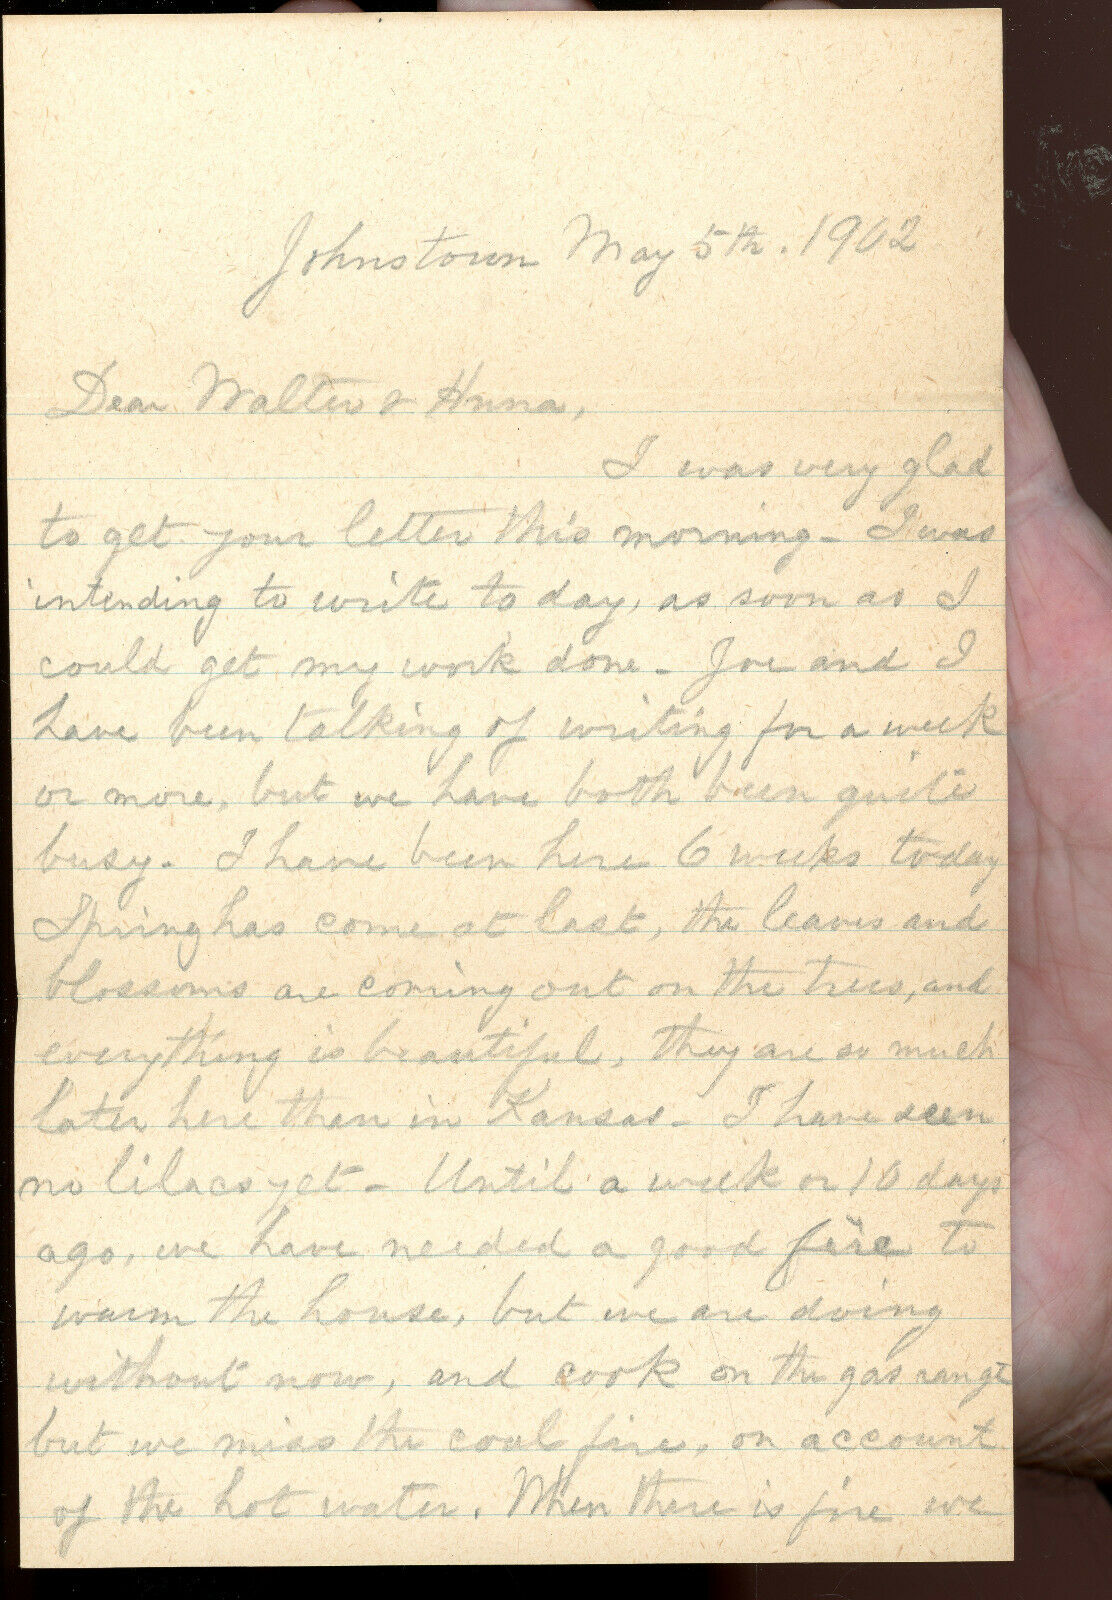 Johnstown May 5th. 1902
Dear Walter & Anna,
I was very glad
to get your letter this morning - I was
intending to write to day, as soon as I
could get my work done - Joe and I
have been talking of writing for a week
or more, but we have both been quite
busy. I have been here 6 weeks today
Spring has come at last, the leaves and
blossoms are coming out on the trees, and
everything is beautiful, they are so much
later here than in Kansas - I have seen
no lilacs yet - Until a week or 10 days
ago, we have needed a good fire to
warm the house, but we are doing
without now, and cook on the gas range
but we miss the coal fire, on account
of the hot water. When there is fire we